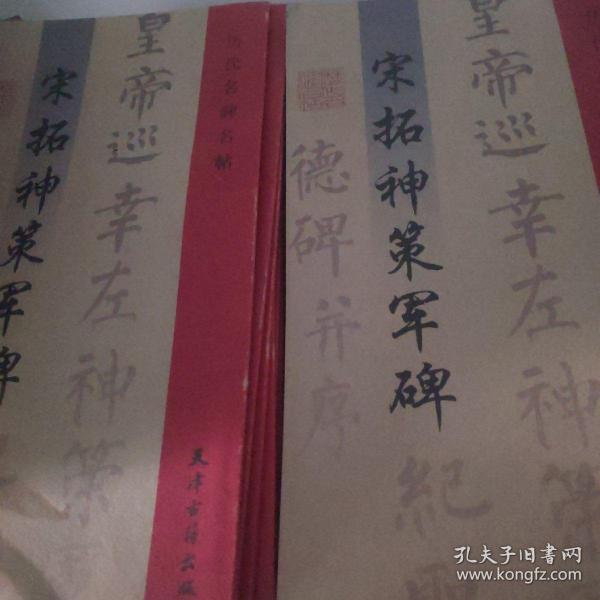 皇帝巡幸左神策
宋拓神策军碑
历代名碑名帖
天津古籍出版
皇帝巡幸左神策
宋拓神策军碑
紀
德碑并序
孔夫子旧书网
www.kongfz.com